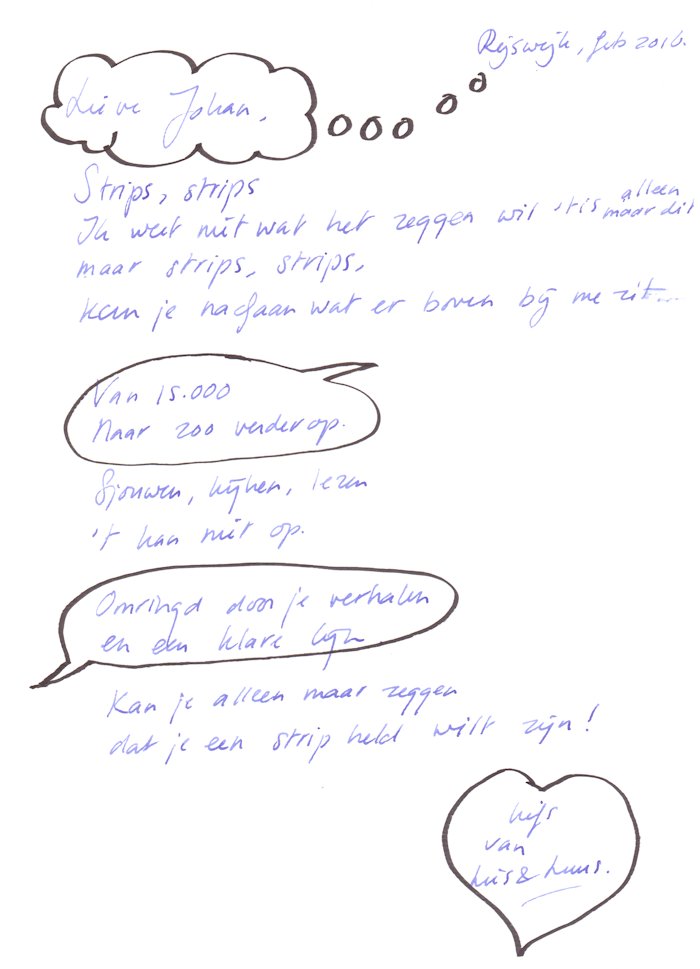 Rijswijk, feb 2016.
Lieve Johan,
Strips, strips
Ik weet niet wat het zeggen wil 'tis alleen maar dit
maar strips, strips,
kun je nagaan wat er boven bij me zit...
Van 15.000
Naar 200 verderop.
Sjouwen, kijken, lezen
't kan niet op.
Omringd door je verhalen
en een klare lijn
Kan je alleen maar zeggen
dat je een strip held wilt zijn!
van